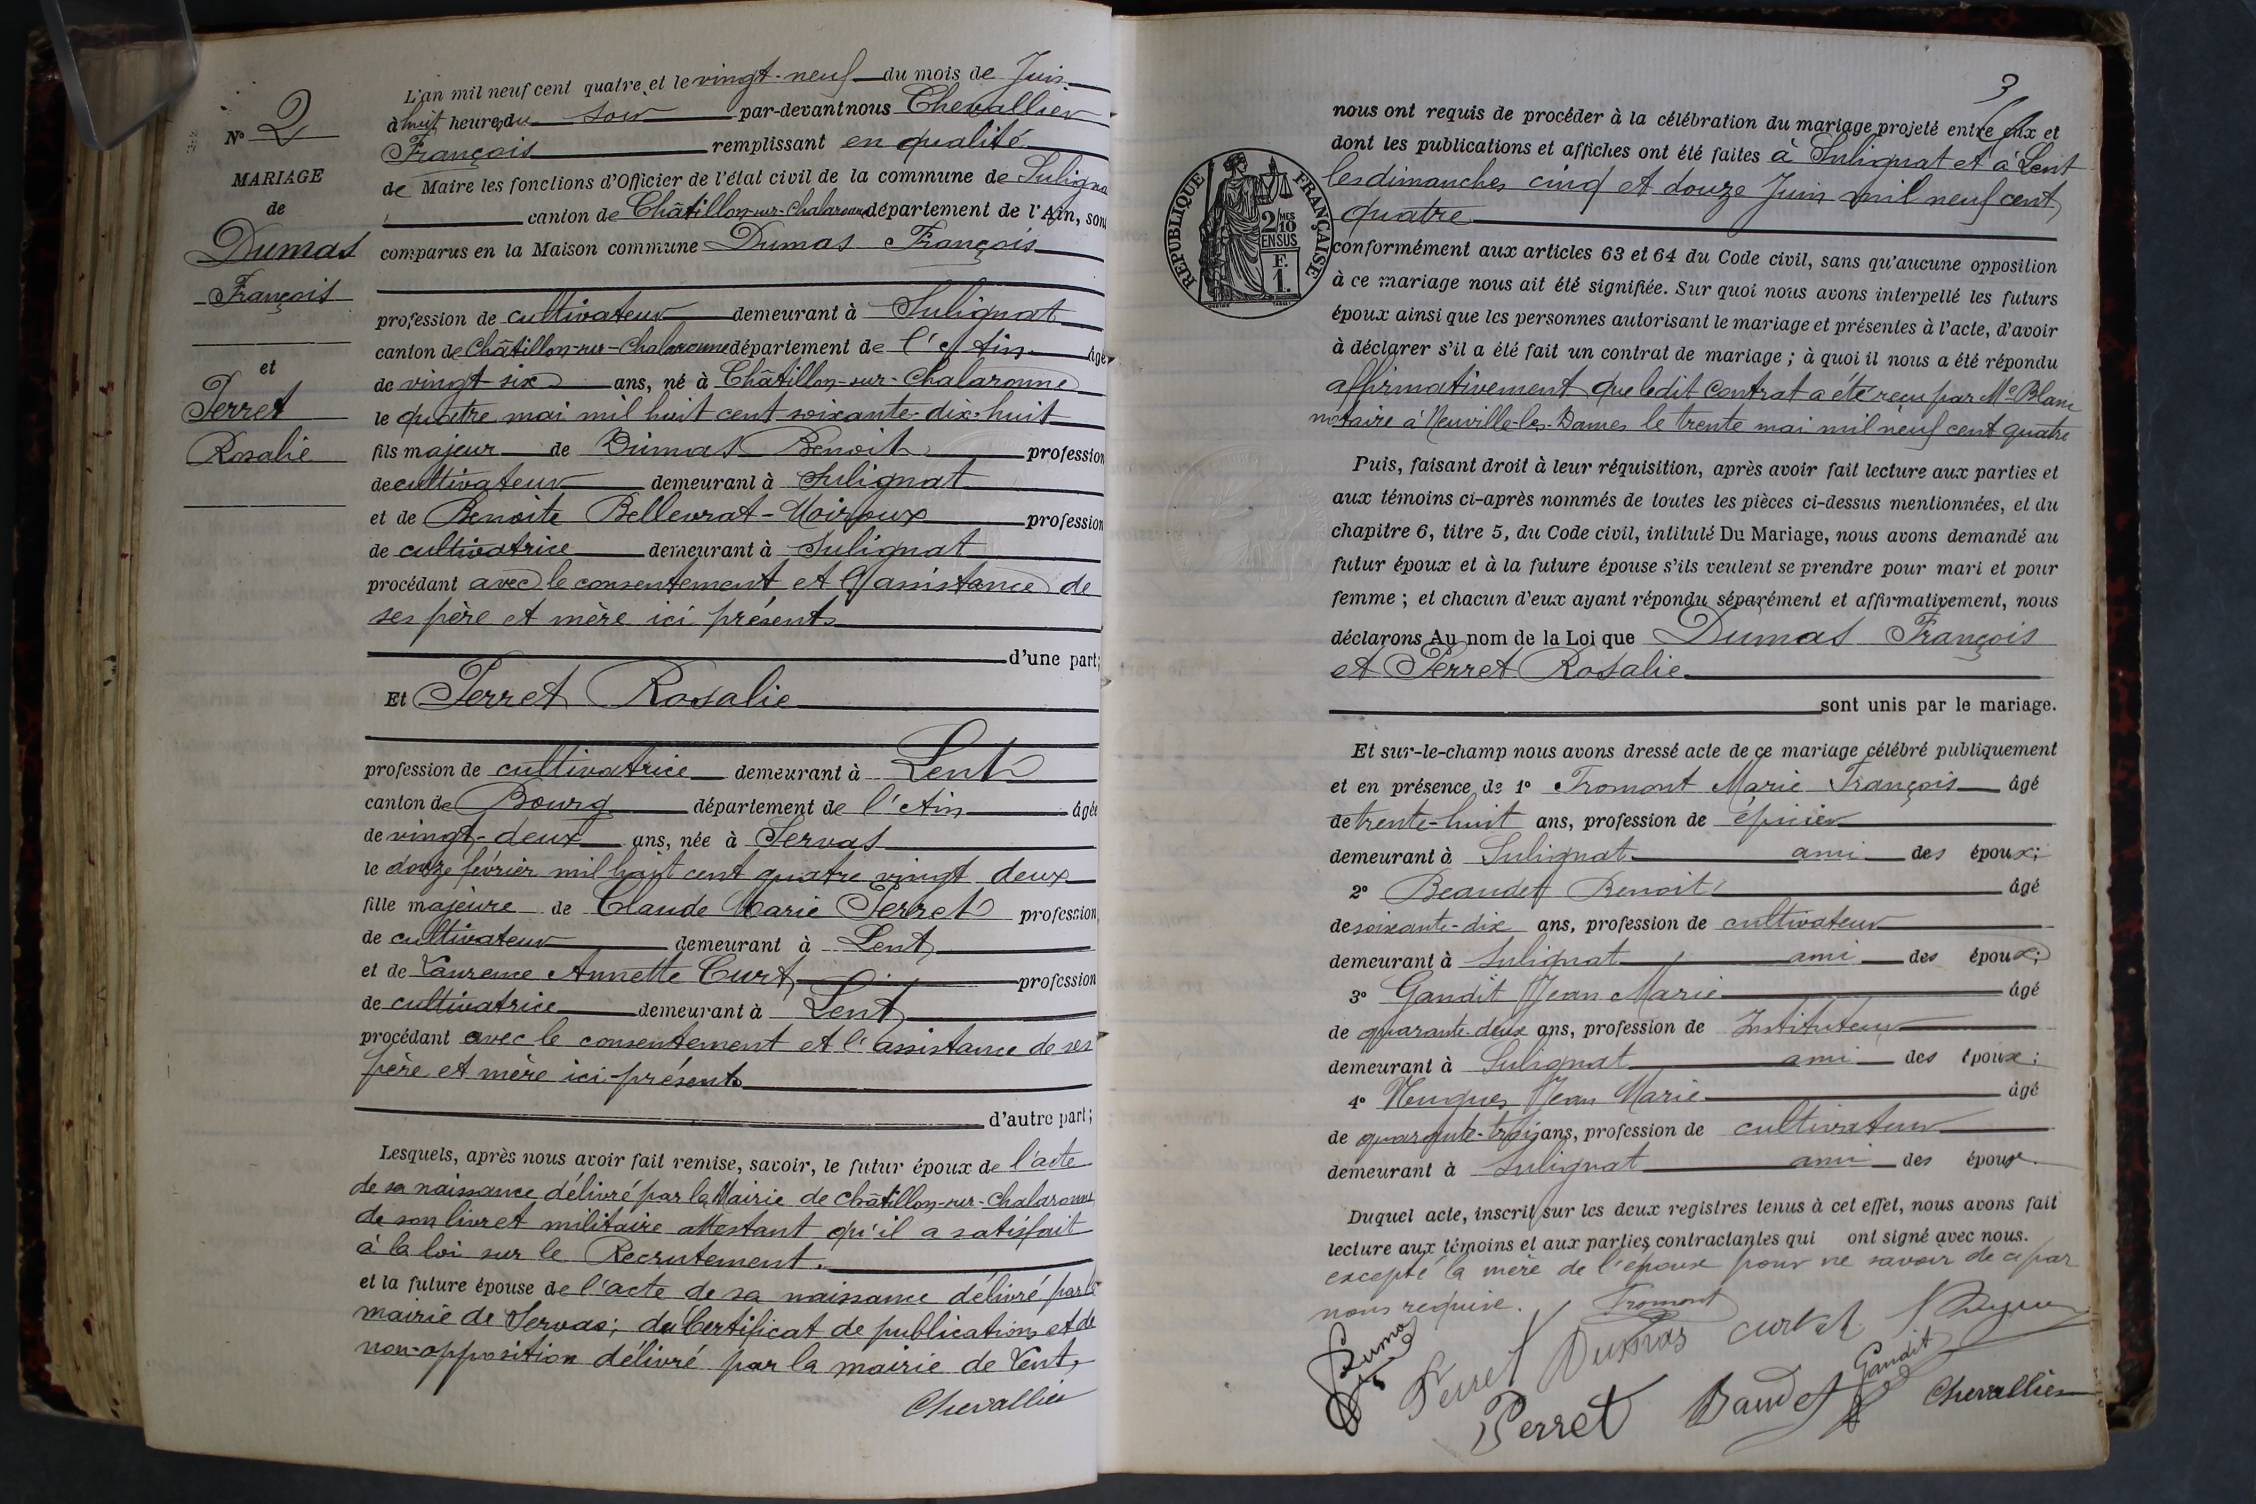 N° 2
MARIAGE
de
Dumas
François
et
Perret
Rosalie
L'an mil neuf cent quatre et le vingt-neuf du mois de Juin
à huit heures du soir par-devant nous Chevallier
François remplissant en qualité
de Maire les fonctions d'Officier de l'état civil de la commune de Sulignat
canton de Châtillon-sur-Chalaronne département de l'Ain, sont
comparus en la Maison commune Dumas François
profession de cultivateur demeurant à Sulignat
canton de Châtillon-sur-Chalaronne département de l'Ain âgé
de vingt-six ans, né à Châtillon-sur-Chalaronne
le quatre mai mil huit cent soixante-dix-huit
fils majeur de Dumas Benoit profession
de cultivateur demeurant à Sulignat
et de Benoite Bellevrat-Moiroux profession
de cultivatrice demeurant à Sulignat
procédant avec le consentement et l'assistance de
ses père et mère ici présents
d'une part;
Et Perret Rosalie
profession de cultivatrice demeurant à Lent
canton de Bourg département de l'Ain âgée
de vingt-deux ans, née à Servas
le douze février mil huit cent quatre vingt deux
fille majeure de Claude Marie Perret profession
de cultivateur demeurant à Lent
et de Laurence Annette Curt profession
de cultivatrice demeurant à Lent
procédant avec le consentement et l'assistance de ses
père et mère ici présents
d'autre part;
Lesquels, après nous avoir fait remise, savoir, le futur époux de l'acte
de sa naissance délivré par la Mairie de Châtillon-sur-Chalaronne
de son livret militaire attestant qu'il a satisfait
à la loi sur le Recrutement.
et la future épouse de l'acte de sa naissance délivré par la
mairie de Servas; du Certificat de publications et de
non-opposition délivré par la mairie de Lent,
Chevallier
3
RÉPUBLIQUE FRANÇAISE
2/10 MES
EN SUS
F.
1.
nous ont requis de procéder à la célébration du mariage projeté entre eux et
dont les publications et affiches ont été faites à Sulignat et à Lent
les dimanches cinq et douze Juin mil neuf cent
quatre
conformément aux articles 63 et 64 du Code civil, sans qu'aucune opposition
à ce mariage nous ait été signifiée. Sur quoi nous avons interpellé les futurs
époux ainsi que les personnes autorisant le mariage et présentes à l'acte, d'avoir
à déclarer s'il a été fait un contrat de mariage; à quoi il nous a été répondu
affirmativement que ledit contrat a été reçu par Me Blanc
notaire à Neuville-les-Dames le trente mai mil neuf cent quatre
Puis, faisant droit à leur réquisition, après avoir fait lecture aux parties et
aux témoins ci-après nommés de toutes les pièces ci-dessus mentionnées, et du
chapitre 6, titre 5, du Code civil, intitulé Du Mariage, nous avons demandé au
futur époux et à la future épouse s'ils veulent se prendre pour mari et pour
femme; et chacun d'eux ayant répondu séparément et affirmativement, nous
déclarons Au nom de la Loi que Dumas François
et Perret Rosalie
sont unis par le mariage.
Et sur-le-champ nous avons dressé acte de ce mariage célébré publiquement
et en présence de 1° Fromont Marie François âgé
de trente-huit ans, profession de épicier
demeurant à Sulignat ami des époux;
2° Beaudet Benoit âgé
de soixante-dix ans, profession de cultivateur
demeurant à Sulignat ami des époux;
3° Gandit Jean Marie âgé
de quarante-deux ans, profession de Instituteur
demeurant à Sulignat ami des époux;
4° Jean Marie âgé
de quarante-trois ans, profession de cultivateur
demeurant à Sulignat ami des époux.
Duquel acte, inscrit sur les deux registres tenus à cet effet, nous avons fait
lecture aux témoins et aux parties contractantes qui ont signé avec nous.
excepté la mère de l'époux pour ne savoir de ce par
nous requise.
Fromont
Dumas Perret Dumas Curt
Perret Baudet Gandit Chevallier